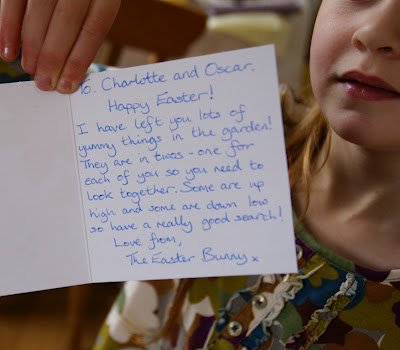 To. Charlotte and Oscar.
Happy Easter!
I have left you lots of
yummy things in the garden!
They are in twos - one for
each of you so you need to
look together. Some are up
high and some are down low
so have a really good search!
Love from,
The Easter Bunny x